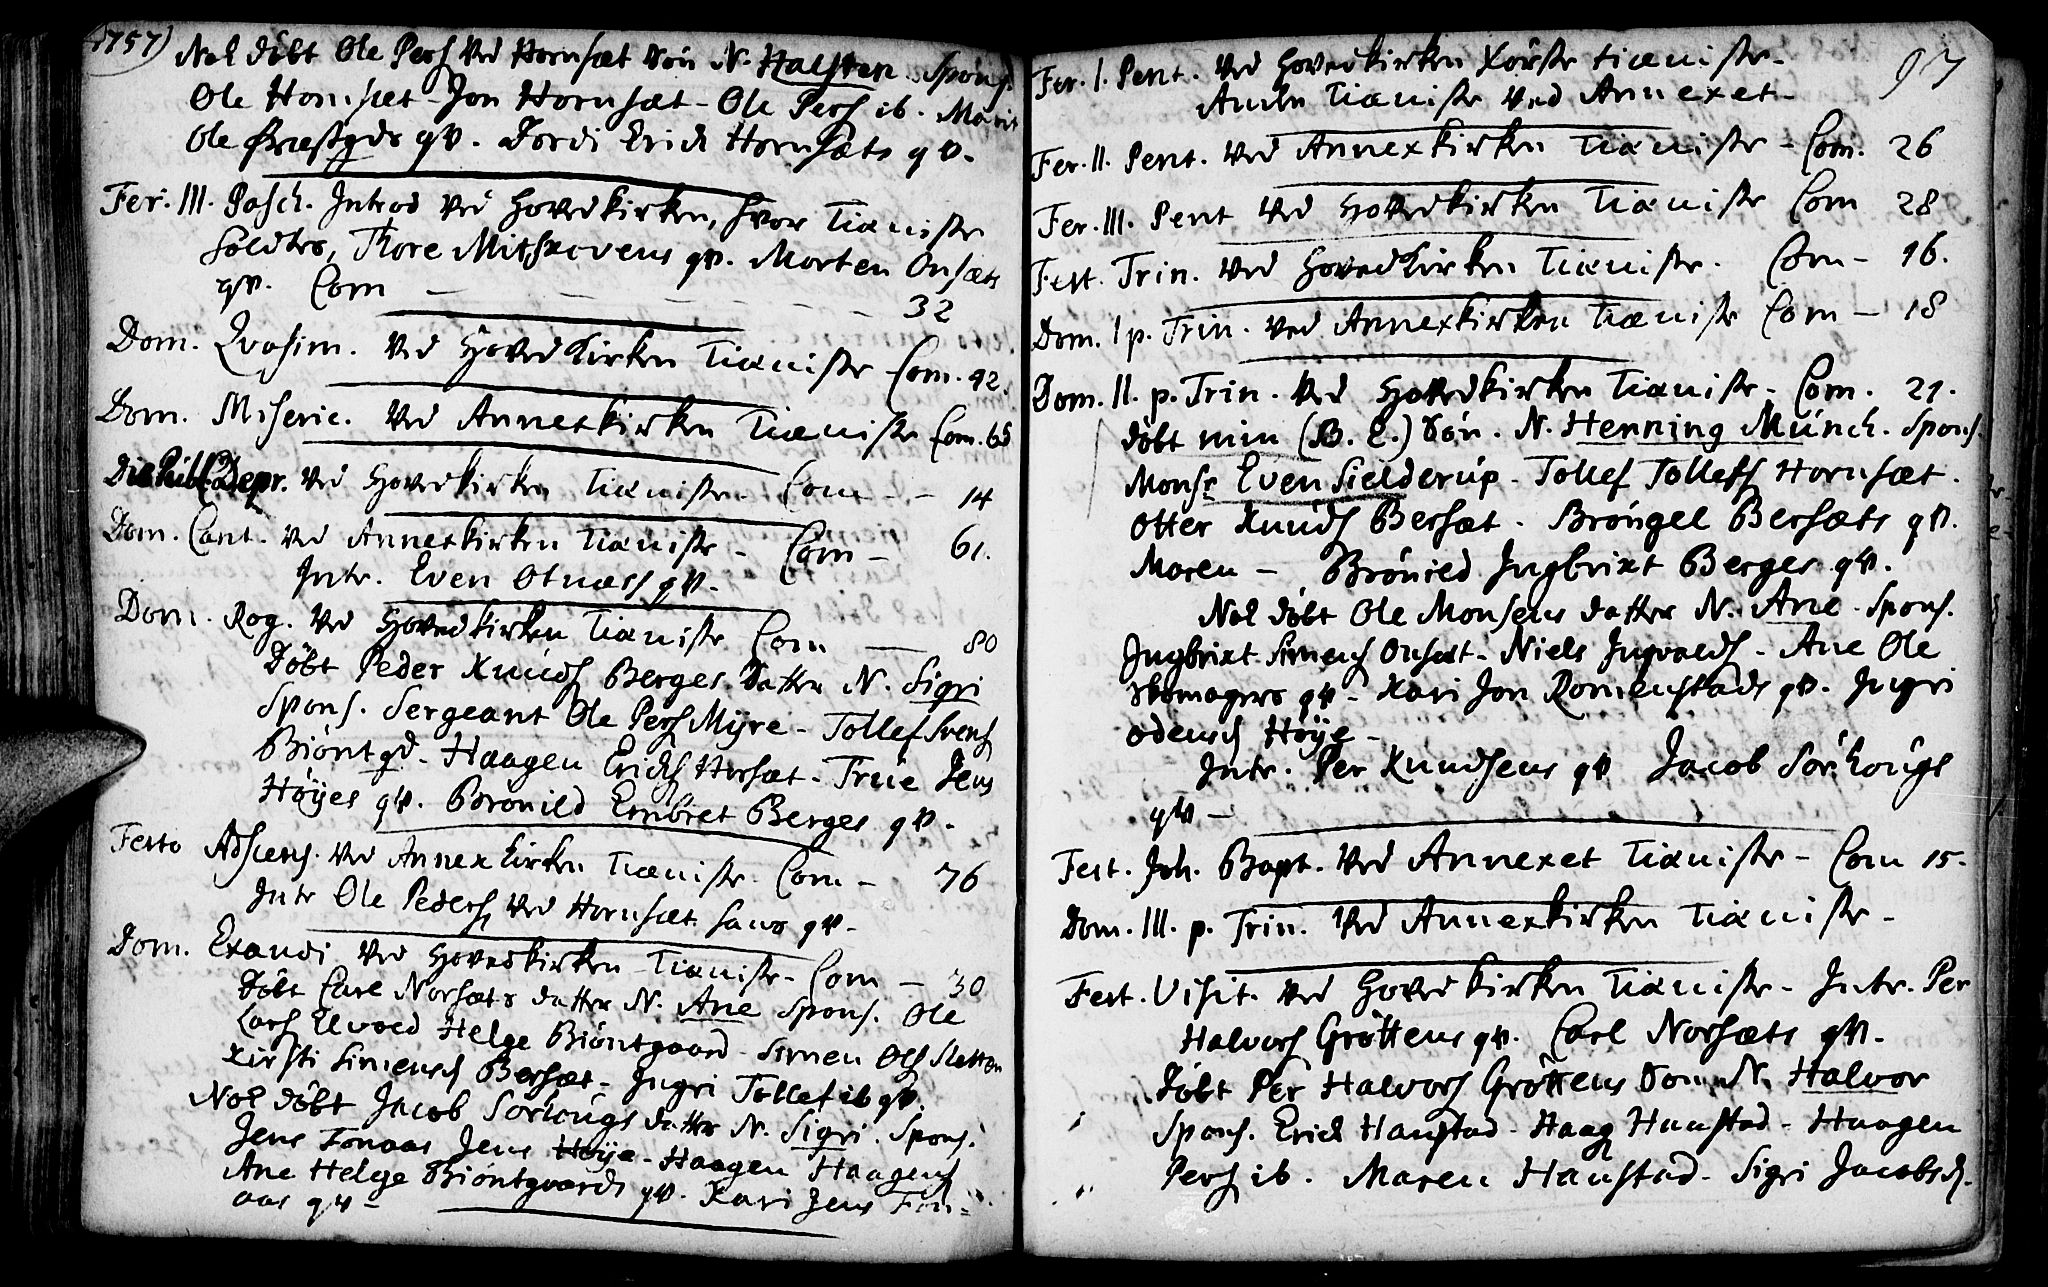 1757)
Nok døbt Ole Pers Ved Hornsæt Søn N. Halsten. Spons.
Ole Hornsæt - Jon Hornsæt - Ole Pers ib. Marit
Ole Præstgds qv. Dordi Erich Hornsæts qv.
Fer. III. Pasch. Introd Ved Hovedkirken, hvor Tieniste
holdtes, Thore Mitskovens qv. Morten Onsæts
qv. Com — 32
Dom. Qvasim. Ved Hovedkirken Tieniste Com. 92.
Dom. Miseric. Ved Annexkirken Tieniste Com. 65
Depr. Ved Hovedkirken Tieniste - Com - - 14
Dom. Cant. Ved Annexkirken Tieniste - Com - 61.
Intr. Even Otnæss qv.
Dom. Rog. Ved Hovedkirken Tieniste Com — 80
Døbt Peder Knuds Berges Datter N. Sigri
Spons. Sergeant Ole Pers Mÿre - Tollef Svens
Biøntgd - Haagen Erichs Horsæt - Frue Jens
Høÿes qv. Bronild Embret Berges qv.
Festo Adscens. Ved Annexkirken Tieniste. Com - 76
Intr Ole Peders Ved Hornsæt hans qv.
Dom. Exaudi Ved Hovedkirken Tieniste - Com - 30
Døbt Carl Norsæts datter N. Ane Spons. Ole
Lars Elvoed Helge Biøntgaard - Simen Ols Sletten
Kirsti Simensd Bersæt - Ingri Tollef ib qv.
Nok døbt Jacob Sørhougs datter N. Sigri. Spons.
Jens Fonaas Jens Høÿe - Haagen Haagens
Ane Helge Biøntgaards qv. Kari Jens Fon-
aas qv -
97
Fer. I. Pent. Ved Hovedkirken første tieniste -
Anden Tieniste Ved Annexet -
Fer. II. Pent. Ved Annexkirken Tieniste - Com. 26
Fer. III. Pent Ved Hovedkirken Tieniste Com 28
Fest. Trin. Ved Hovedkirken Tieniste. Com - 16.
Dom. I p. Trin. Ved Annexkirken Tieniste Com - 18
Dom. II. p. Trin. Ved Hovedkirken Tieniste - Com. 21.
døbt min (B. E.) Søn. N. Henning Münch. Spons.
Monsr Even Sielderup - Tollef Tollefs Hornsæt.
Otter Knuds Bersæt. Brøngel Bersæts qv.
Maren - Brønild Ingbrixt Berges qv.
Nok døbt Ole Monsens datter N. Ane - Spons.
Ingbrixt Simens Onsæt - Niels Ingvolds - Ane Ole
Skomagers qv - Kari Jon Romenstads qv. Ingri
Odensd Høÿe -
Intr. Per Knudsens qv Jacob Sørhougs
qv -
Fest. Joh. Bapt. Ved Annexet Tieniste - Com 15.
Dom. III. p. Trin. Ved Annexkirken Tieniste -
Fest. Visit. Ved Hovedkirken Tieniste - Intr. Per
Halvors Grøttens qv. Carl Norsæts qv.
Døbt Per Halvors Grøttens Søn N. Halvor
Spons. Erich Hanstad - Haag Hanstad - Haagen
Pers ib. Maren Hanstad - Sigri Jacobsd.